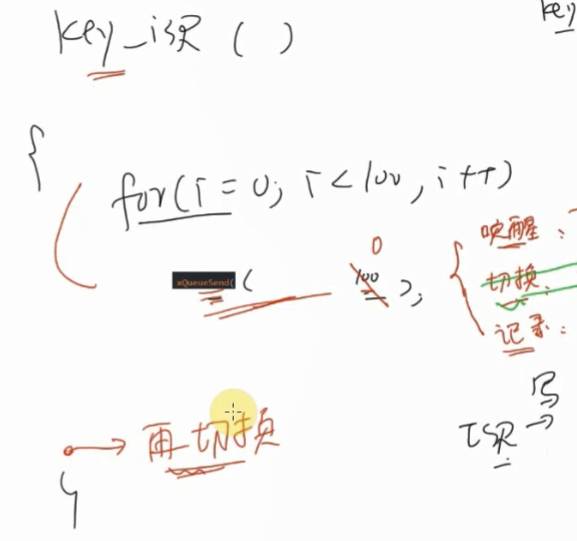 key
key_isR ( )
{
for(i = 0; i < 100, i++)
xQueueSend( ( 100 0 );
唤醒:
切换:
记录:
再切换
ISR →
}